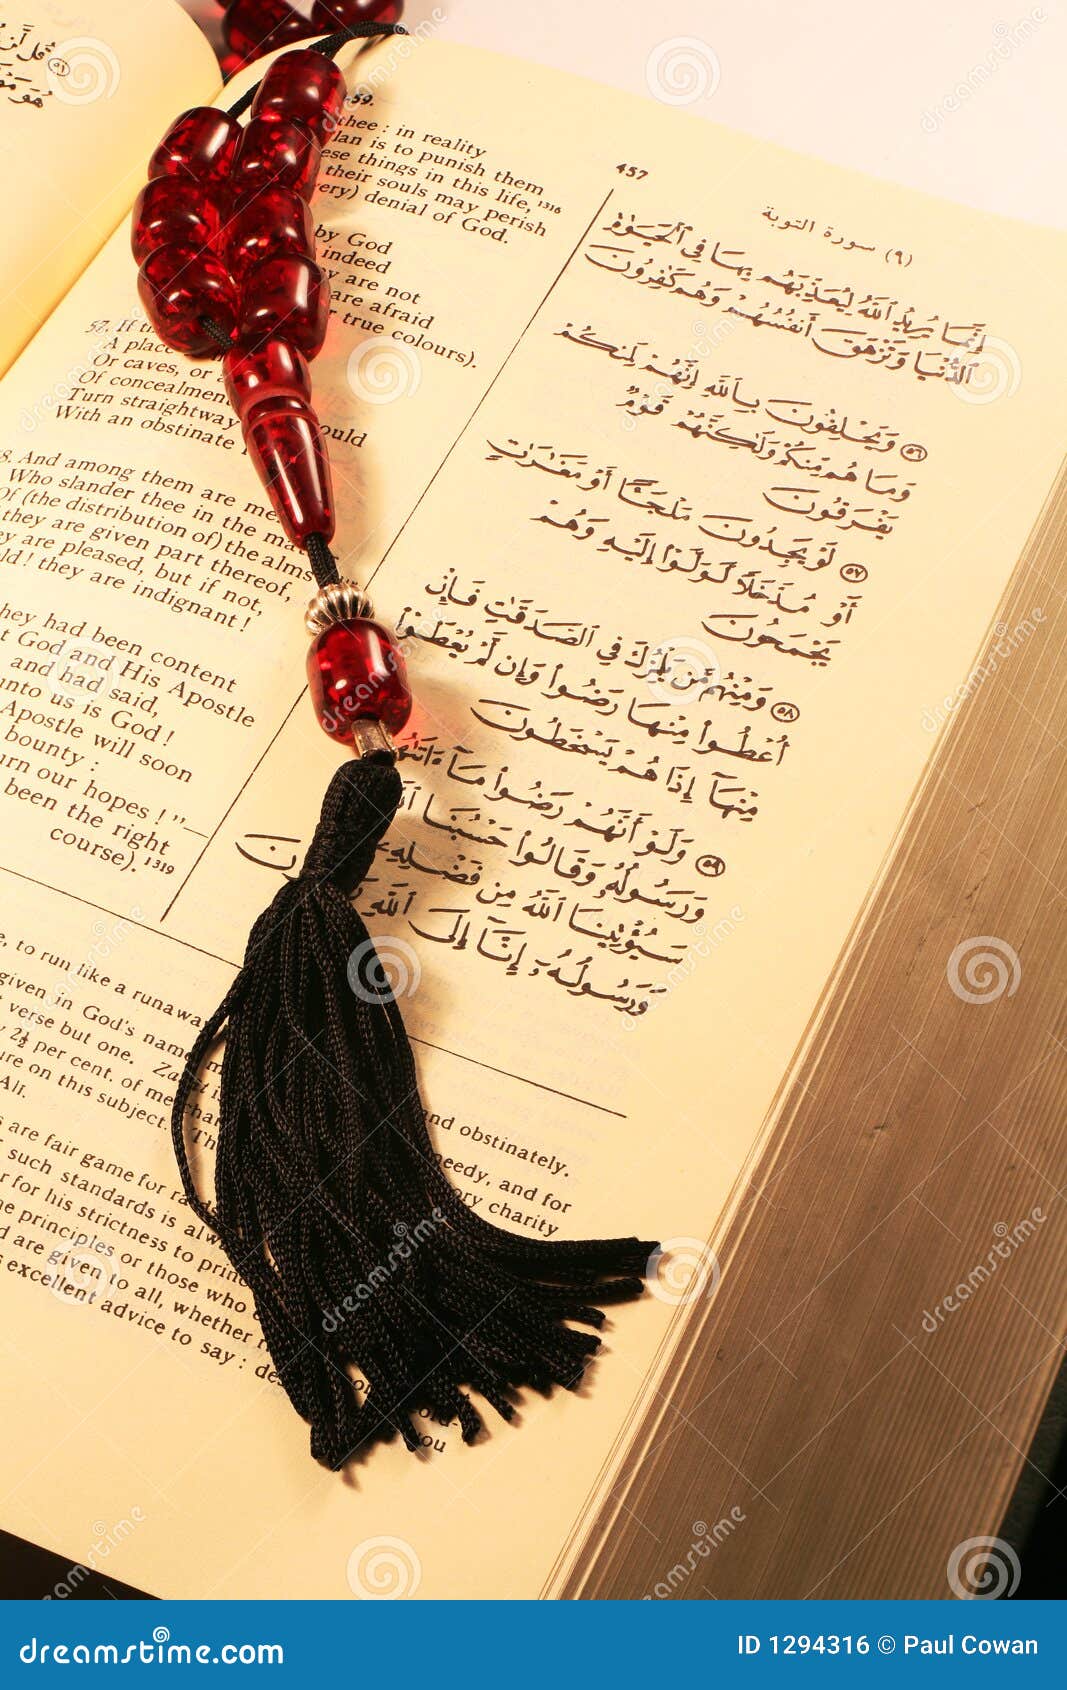 قُلْ
هُوَ
457
(٩) سورة التوبة
إِنَّمَا يُرِيدُ ٱللَّهُ لِيُعَذِّبَهُم بِهَا فِي ٱلْحَيَوٰةِ
ٱلدُّنْيَا وَتَزْهَقَ أَنفُسُهُمْ وَهُمْ كَٰفِرُونَ
٥٦ وَيَحْلِفُونَ بِٱللَّهِ إِنَّهُمْ لَمِنكُمْ
وَمَا هُم مِّنكُمْ وَلَٰكِنَّهُمْ قَوْمٌ
يَفْرَقُونَ
٥٧ لَوْ يَجِدُونَ مَلْجَـًٔا أَوْ مَغَٰرَٰتٍ
أَوْ مُدَّخَلًا لَّوَلَّوْا۟ إِلَيْهِ وَهُمْ
يَجْمَحُونَ
٥٨ وَمِنْهُم مَّن يَلْمِزُكَ فِي ٱلصَّدَقَٰتِ فَإِنْ
أُعْطُوا۟ مِنْهَا رَضُوا۟ وَإِن لَّمْ يُعْطَوْا۟
مِنْهَآ إِذَا هُمْ يَسْخَطُونَ
٥٩ وَلَوْ أَنَّهُمْ رَضُوا۟ مَآ ءَاتَىٰهُمُ
وَرَسُولُهُۥ وَقَالُوا۟ حَسْبُنَا
سَيُؤْتِينَا ٱللَّهُ مِن فَضْلِهِۦ
وَرَسُولُهُۥٓ إِنَّآ إِلَى ٱللَّهِ
-59.
thee : in reality
is to punish them
these things in this life, 1316
their souls may perish
denial of God.
by God
indeed
are not
are afraid
true colours).
57. If
A place
Or caves, or
Of concealment
Turn straightway would
With an obstinate
And among them are
Who slander thee in the
Of (the distribution of) the alms
they are given part thereof,
are pleased, but if not,
they are indignant !
they had been content
God and His Apostle
and had said,
unto us is God !
Apostle will soon
bounty :
turn our hopes !"—
been the right
course). 1319
to run like a runaway and obstinately.
given in God's name needy, and for
verse but one. charity
2½ per cent. of
on this subject.
Ali.
are fair game for
such standards is
for his strictness to
principles or those who
are given to all, whether
excellent advice to say :
you
dreamstime.com
ID 1294316 © Paul Cowan